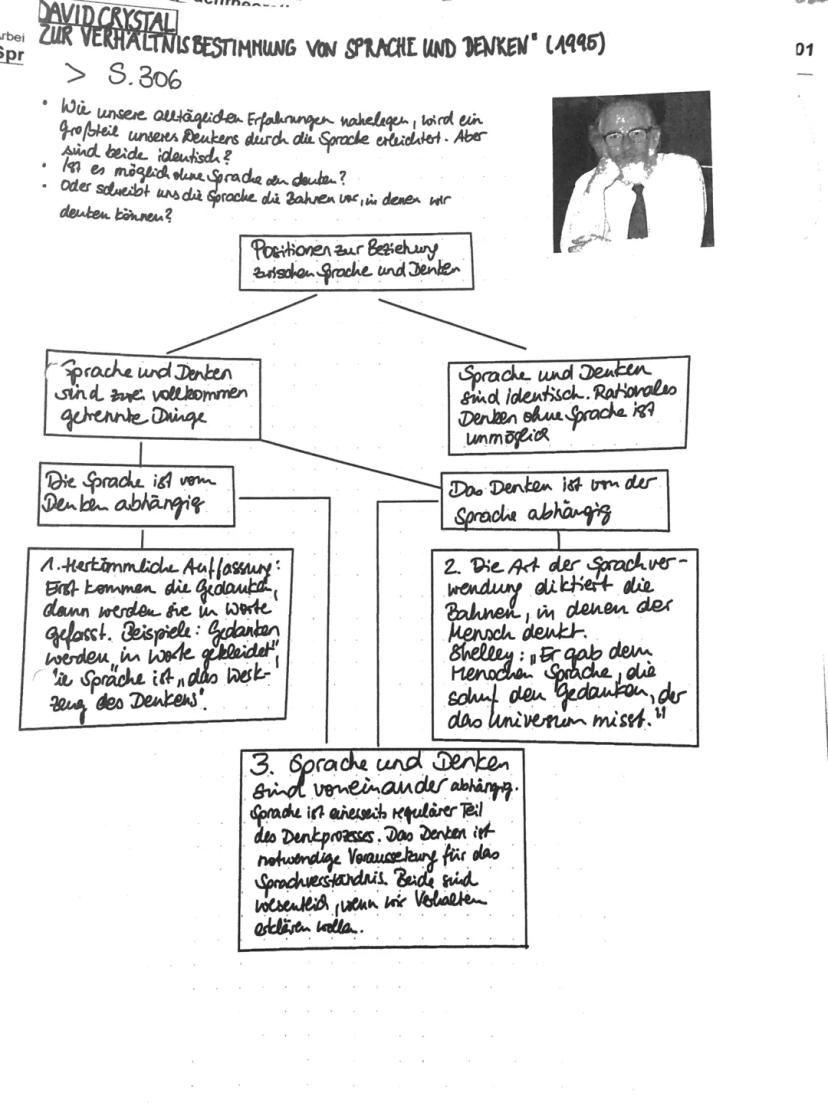 DAVID CRYSTAL
ZUR VERHÄLTNISBESTIMMUNG VON SPRACHE UND DENKEN" (1995)
rbei
Spr
01
> S. 306
• Wie unsere alltäglichen Erfahrungen nahelegen, wird ein
Großteil unseres Denkens durch die Sprache erleichtert. Aber
sind beide identisch?
• Ist es möglich ohne Sprache zu denken?
• Oder schreibt uns die Sprache die Bahnen vor, in denen wir
denken können?
Positionen zur Beziehung
zwischen Sprache und Denken
Sprache und Denken
sind zwei vollkommen
getrennte Dinge
Sprache und Denken
sind identisch. Rationales
Denken ohne Sprache ist
unmöglich
Die Sprache ist vom
Denken abhängig
Das Denken ist von der
Sprache abhängig
1. Herkömmliche Auffassung:
Erst kommen die Gedanken,
dann werden sie in Worte
gefasst. Beispiele: Gedanken
werden „in Worte gekleidet",
ie Sprache ist „das Werk-
zeug des Denkens".
2. Die Art der Sprachver-
wendung diktiert die
Bahnen, in denen der
Mensch denkt.
Shelley: „Er gab dem
Menschen Sprache, die
schuf den Gedanken, der
das Universum misst."
3. Sprache und Denken
sind voneinander abhängig.
Sprache ist einerseits regulärer Teil
des Denkprozesses. Das Denken ist
notwendige Voraussetzung für das
Sprachverständnis. Beide sind
wesentlich, wenn wir Verhalten
erklären wollen.